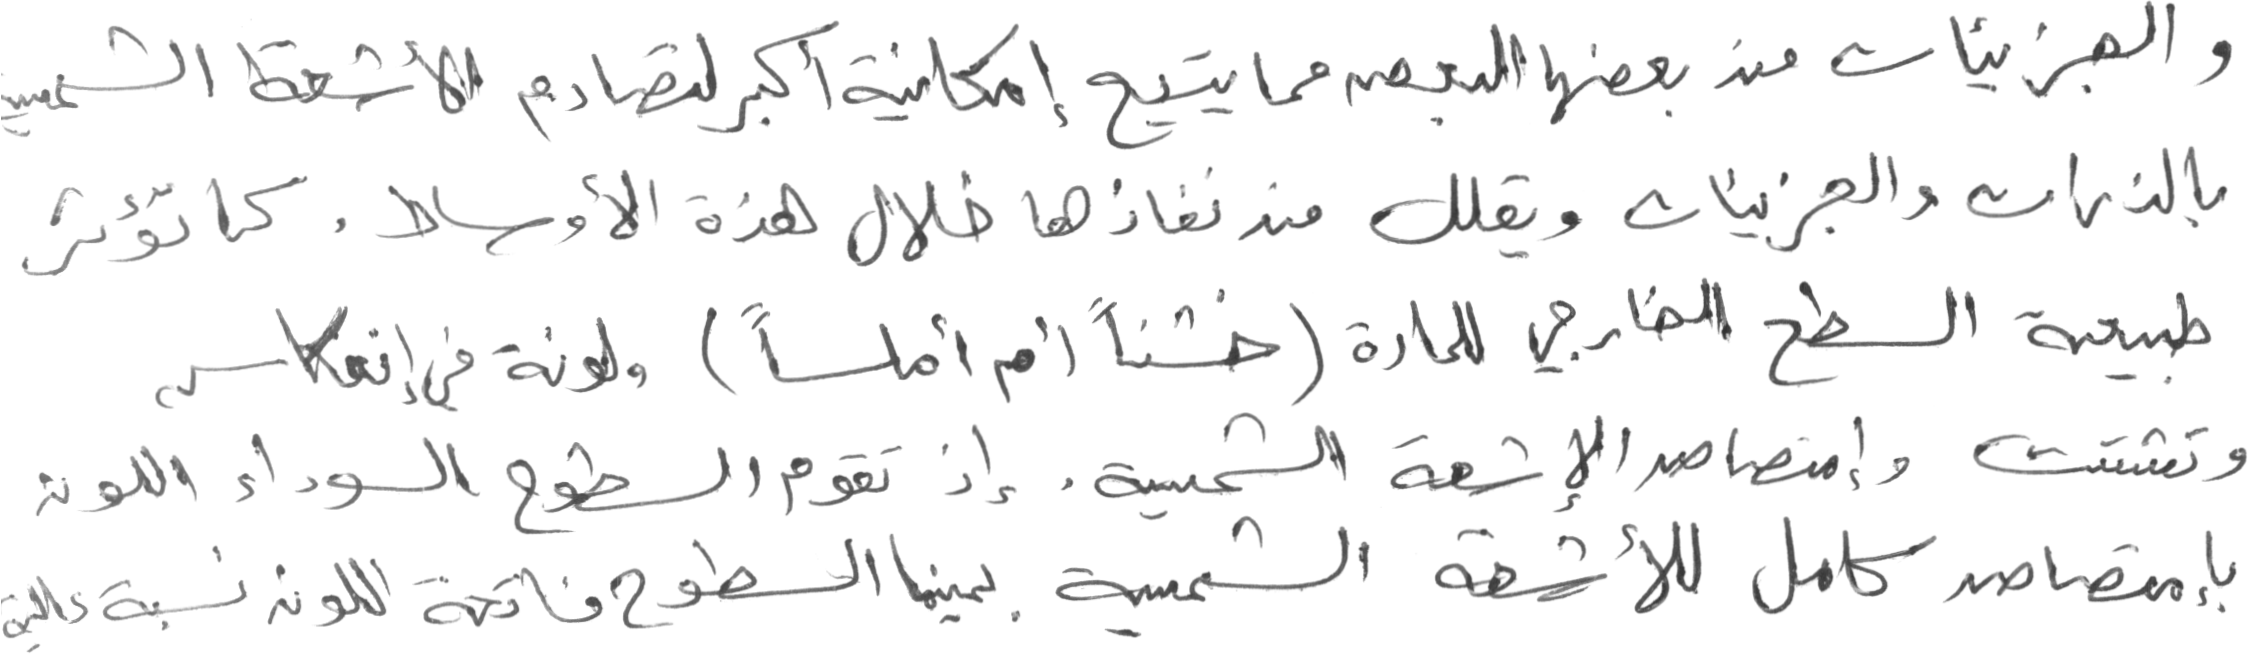 والجزيئات من بعضها البعض مما يتيح إمكانية أكبر لتصادم الأشعة الشمسية
بالذرات والجزيئات ويقلل من نفاذها خلال هذة الأوساط. كما تؤثر
طبيعة السطح الخارجي للمادة (خشناً أم أملساً) ولونة في إنعكاس
وتشتت وإمتصاص الإشعة الشمسية. إذ تقوم السطوح السوداء اللون
بإمتصاص كامل للأشعة الشمسية بينما السطوح فاتحة اللون نسبة عالية